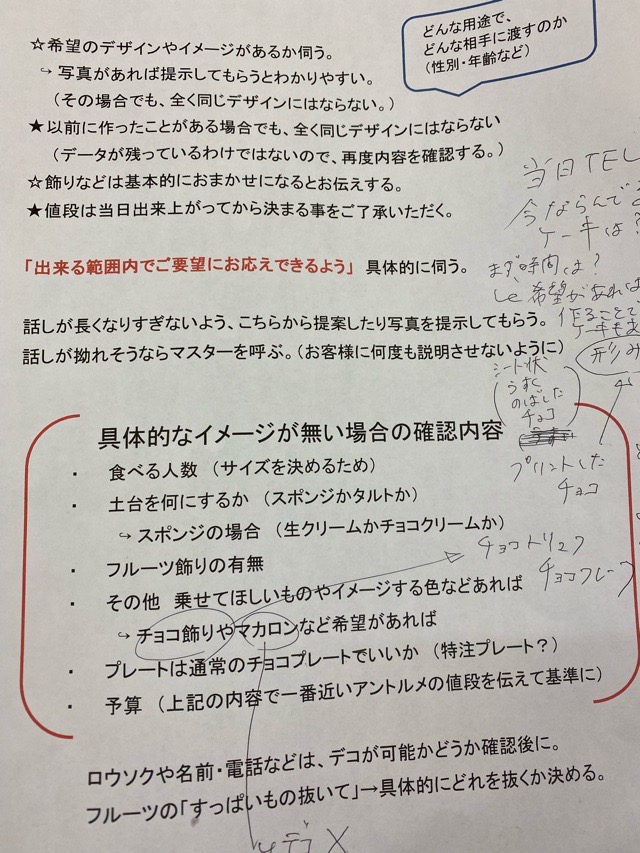 どんな用途で、
どんな相手に渡すのか
(性別・年齢など)
☆希望のデザインやイメージがあるか伺う。
↪ 写真があれば提示してもらうとわかりやすい。
(その場合でも、全く同じデザインにはならない。)
★以前に作ったことがある場合でも、全く同じデザインにはならない
(データが残っているわけではないので、再度内容を確認する。)
☆飾りなどは基本的におまかせになるとお伝えする。
★値段は当日出来上がってから決まる事をご了承いただく。
「出来る範囲内でご要望にお応えできるよう」 具体的に伺う。
話しが長くなりすぎないよう、こちらから提案したり写真を提示してもらう。
話しが拗れそうならマスターを呼ぶ。(お客様に何度も説明させないように)
当日TEL
今ならんで
ケーキは?
まず時間は?
希望があれば
作ること
ケーキも
形
シート状
うすく
のばした
チョコ
プリントした
チョコ
具体的なイメージが無い場合の確認内容
・ 食べる人数 (サイズを決めるため)
・ 土台を何にするか (スポンジかタルトか)
↪ スポンジの場合 (生クリームかチョコクリームか)
・ フルーツ飾りの有無
・ その他 乗せてほしいものやイメージする色などあれば
↪ チョコ飾りやマカロンなど希望があれば
チョコトリュフ
チョコプレー
・ プレートは通常のチョコプレートでいいか (特注プレート?)
・ 予算 (上記の内容で一番近いアントルメの値段を伝えて基準に)
ロウソクや名前・電話などは、デコが可能かどうか確認後に。
フルーツの「すっぱいもの抜いて」→具体的にどれを抜くか決める。
デコ×